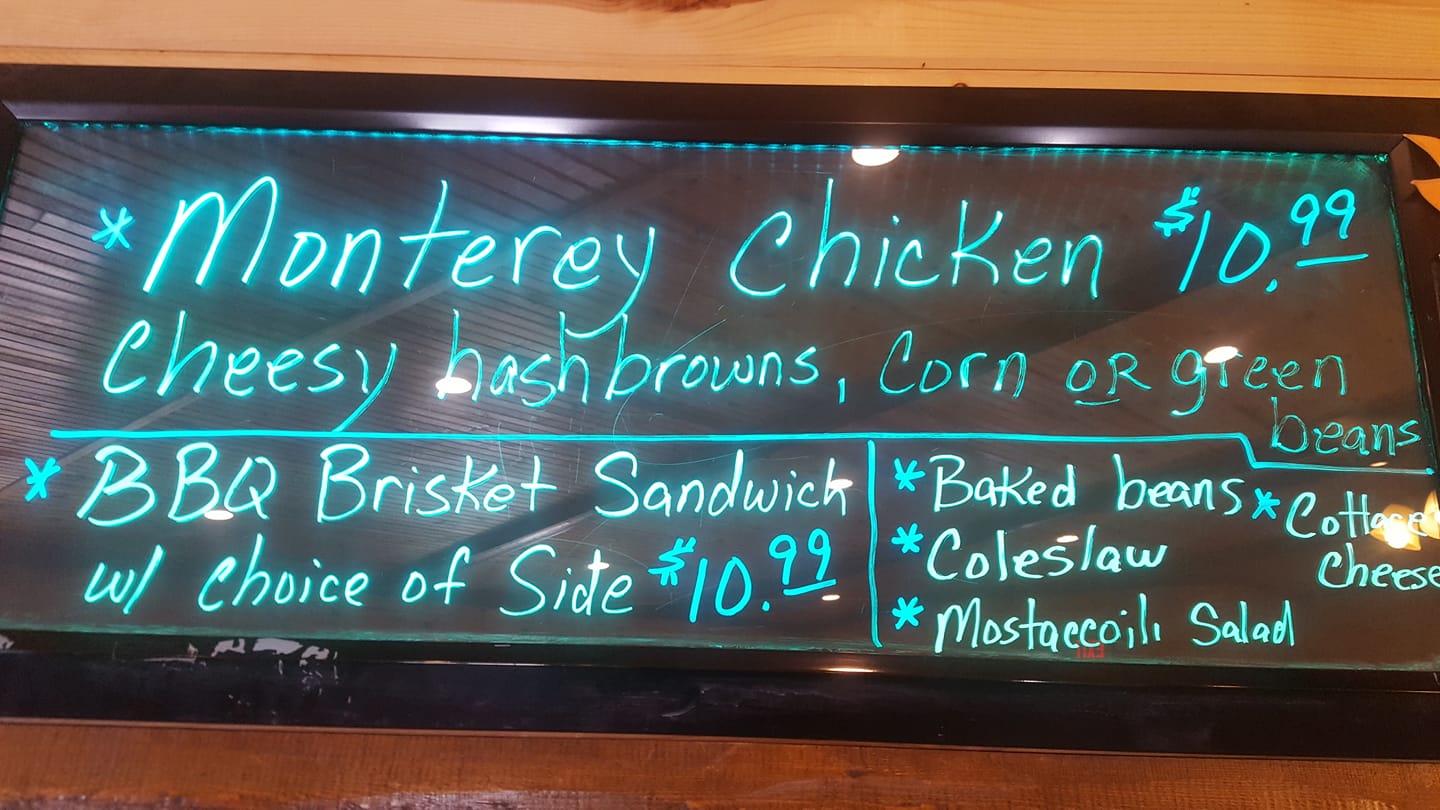 * Monterey Chicken $10.99
Cheesy hashbrowns, Corn OR green
beans
* BBQ Brisket Sandwich
w/ choice of Side $10.99
* Baked beans
* Coleslaw
* Mostaccoili Salad
* Cottage
Cheese